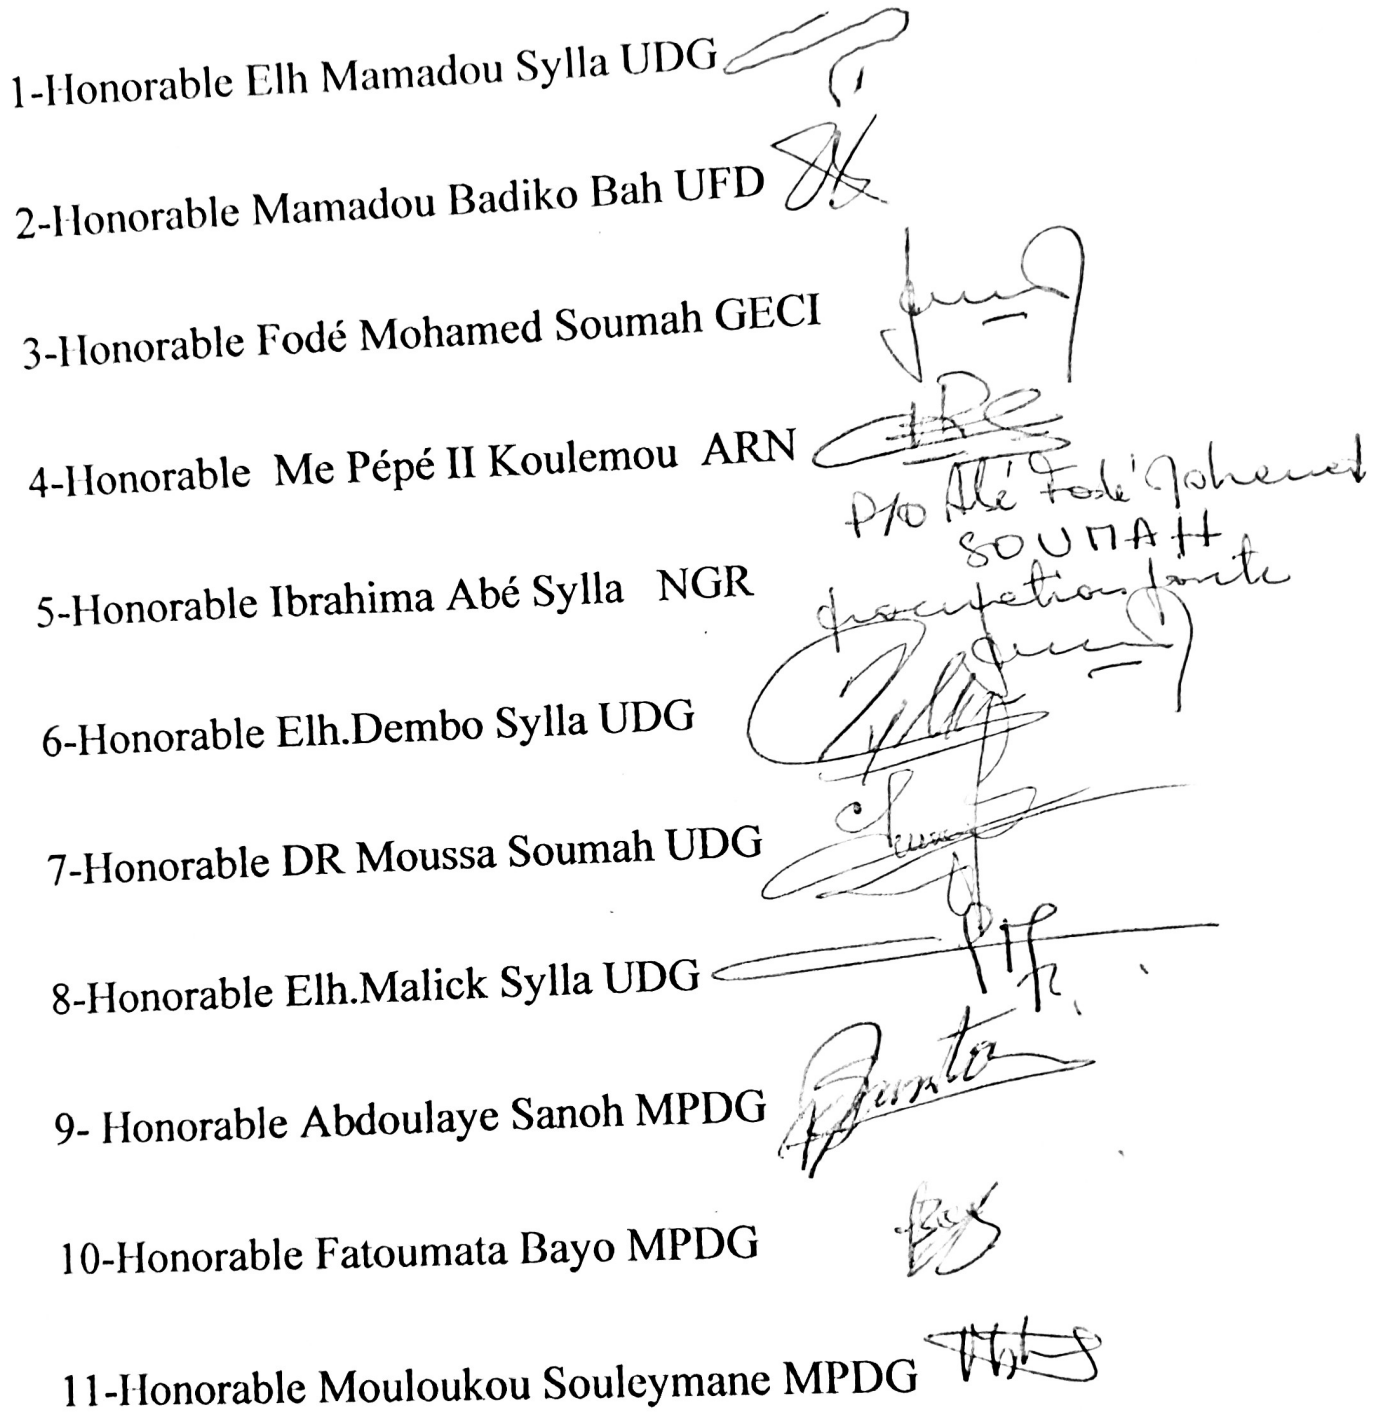 1-Honorable Elh Mamadou Sylla UDG
2-Honorable Mamadou Badiko Bah UFD
3-Honorable Fodé Mohamed Soumah GECI
4-Honorable Me Pépé II Koulemou ARN
P/O Fodé Mohamed
SOUMAH
5-Honorable Ibrahima Abé Sylla NGR
procuration jointe
6-Honorable Elh.Dembo Sylla UDG
7-Honorable DR Moussa Soumah UDG
8-Honorable Elh.Malick Sylla UDG
9- Honorable Abdoulaye Sanoh MPDG
10-Honorable Fatoumata Bayo MPDG
11-Honorable Mouloukou Souleymane MPDG